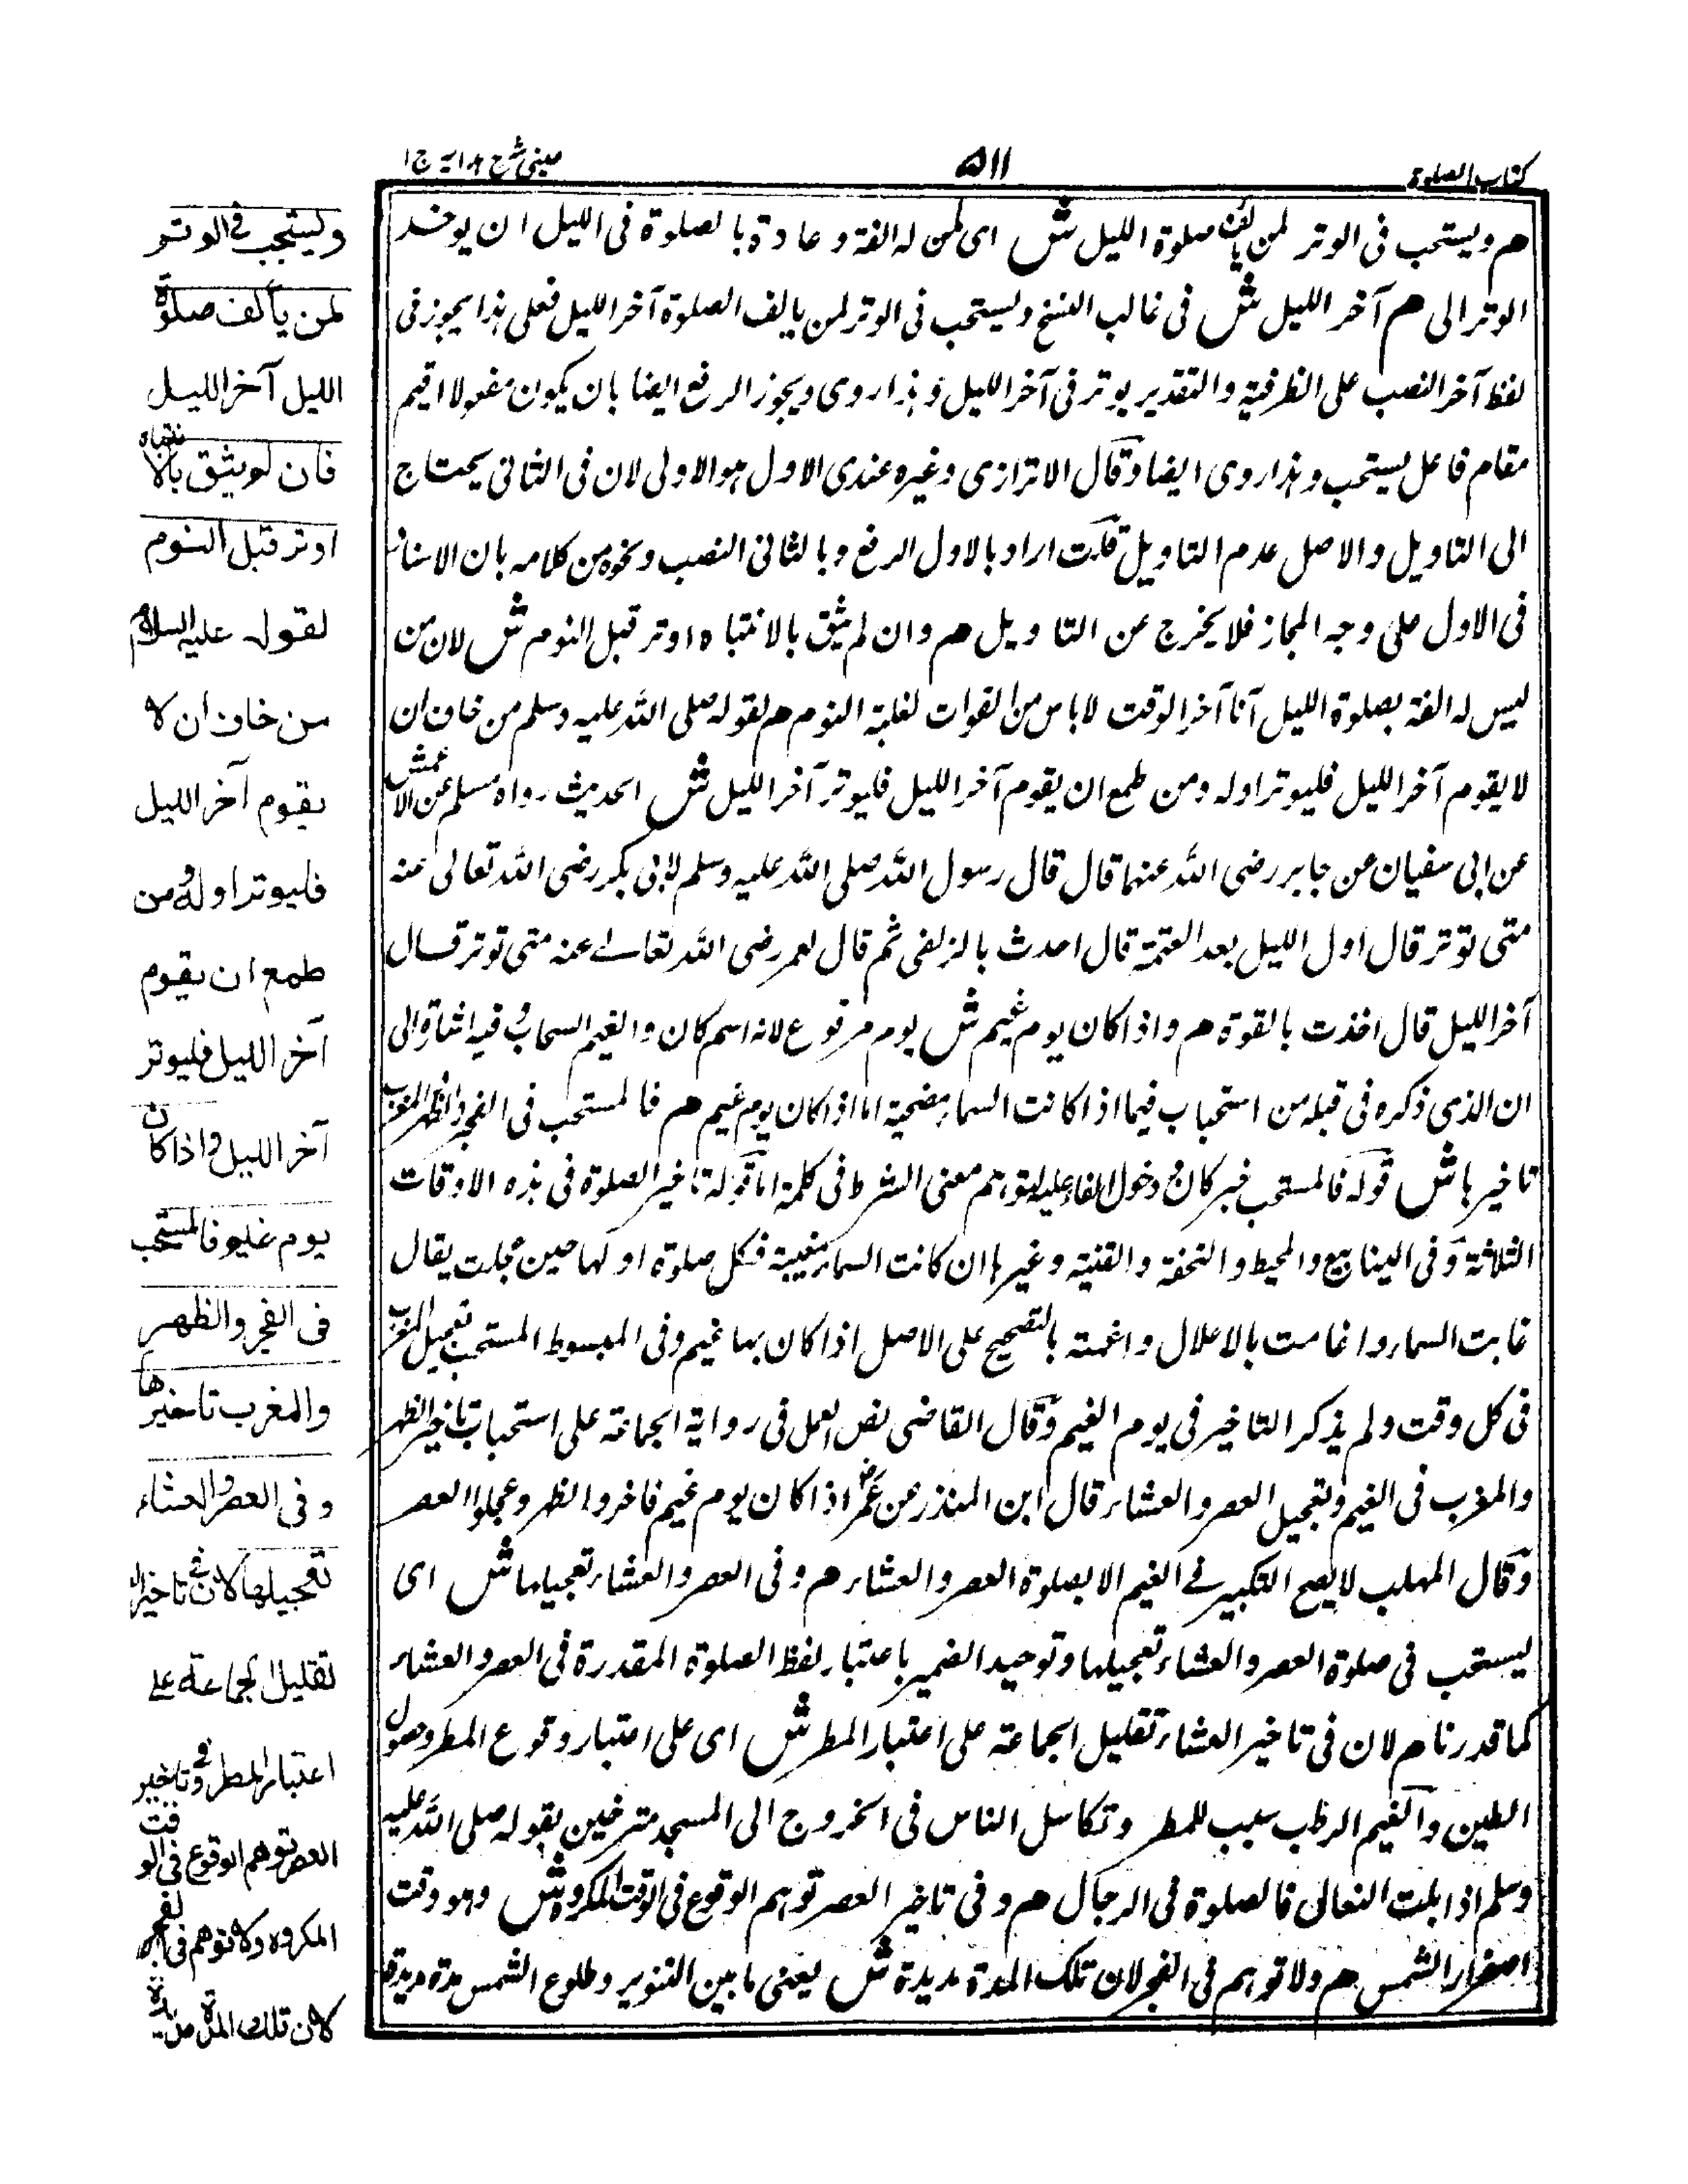 كتاب الصلوة
٥١١
عينى شرح هدايہ ج ا
م ويستحب فى الوتر لمن يالف صلوة الليل ش اى لمن له الفة وعادة بالصلوة فى الليل ان يوخر
الوتر الى م آخر الليل ش فى غالب النسخ ويستحب فى الوتر لمن يالف الصلوة آخر الليل فعلى هذا يجوز فى
لفظ آخر النصب على الظرفية والتقدير يوتر فى آخر الليل وهذا روى ويجوز الرفع ايضا بان يكون مفعولا اقيم
مقام فاعل يستحب وهذا روى ايضا وقال الاترازى وغيره عندى الاول هو الاولى لان فى الثانى يحتاج
الى التاويل والاصل عدم التاويل قلت اراد بالاول الرفع وبالثانى النصب ونحوه من كلامه بان الاسناد
فى الاول على وجه المجاز فلا يخرج عن التاويل م وان لم يثق بالانتباه اوتر قبل النوم ش لان من
ليس له الفة بصلوة الليل آخر الوقت لا باس من الفوات لغلبة النوم م لقوله صلى الله عليه وسلم من خاف ان
لا يقوم آخر الليل فليوتر اوله ومن طمع ان يقوم آخر الليل فليوتر آخر الليل ش الحديث رواه مسلم عن الاعمش
عن ابى سفيان عن جابر رضى الله عنهما قال قال رسول الله صلى الله عليه وسلم لابى بكر رضى الله تعالى عنه
متى توتر قال اول الليل بعد العتمة قال اخذت بالزلفى ثم قال لعمر رضى الله تعالے عنه متى توتر قال
آخر الليل قال اخذت بالقوة م واذا كان يوم غيم ش يوم مرفوع لانه اسم كان والغيم السحاب وفيه اشارة الى
ان الذى ذكره فى قبله من استحباب فيما اذا كانت السماء مضحية اما اذا كان يوم غيم م فالمستحب فى الفجر والظهر والمغرب
تاخيرها ش قوله فالمستحب خبر كان ودخول الفاء عليه لتوهم معنى الشرط فى كلمة اما قوله تاخير الصلوة فى هذه الاوقات
الثلاثة وفى الينابيع والمحيط والتحفة والقنية وغيرها ان كانت السماء مغيبة فكل صلوة اولها عين عجلت يقال
غابت السماء واغامت بالاعلال واغيمت بالتصحيح على الاصل اذا كان بها غيم وفى المبسوط المستحب تعجيل المغرب
فى كل وقت ولم يذكر التاخير فى يوم الغيم وقال القاضى نص العمل فى رواية الجماعة على استحباب تاخير الظهر
والمغرب فى الغيم وتعجيل العصر والعشاء قال ابن المنذر عن عمر اذا كان يوم غيم فاخروا الظهر وعجلوا العصر
وقال المهلب لا يصح التكبير فے الغيم الا بصلوة العصر والعشاء م وفى العصر والعشاء تعجيلها ش اى
يستحب فى صلوة العصر والعشاء تعجيلها وتوحيد الضمير باعتبار لفظ الصلوة المقدرة فى العصر والعشاء
كما قدرنا م لان فى تاخير العشاء تقليل الجماعة على اعتبار المطر ش اى على اعتبار وقوع المطر وحصول
الطين والغيم الرطب سبب للمطر وتكاسل الناس فى الخروج الى المسجد مترخصين بقوله صلى الله عليه
وسلم اذا ابلت النعالى فالصلوة فى الرحال م وفى تاخير العصر توهم الوقوع فى الوقت المكروه ش وهو وقت
اصفرار الشمس م ولا توهم فى الفجر لان تلك المدة مديدة ش يعنى ما بين التنوير وطلوع الشمس مدة مديدة
ويستحب فى الوتر
لمن يألف صلوة
الليل آخر الليل
فان لم يثق بالانتباه
اوتر قبل النوم
لقوله عليه السلام
من خاف ان لا
يقوم آخر الليل
فليوتر اوله ومن
طمع ان يقوم
آخر الليل فليوتر
آخر الليل واذا كان
يوم غيم فالمستحب
فى الفجر والظهر
والمغرب تاخيرها
وفى العصر والعشاء
تعجيلها لان فى تاخير ال
تقليل الجماعة علے
اعتبار المطر وفى تاخير
العصر توهم الوقوع فى الوقت
المكروه ولا توهم فى الفجر
لان تلك المدة مديدة